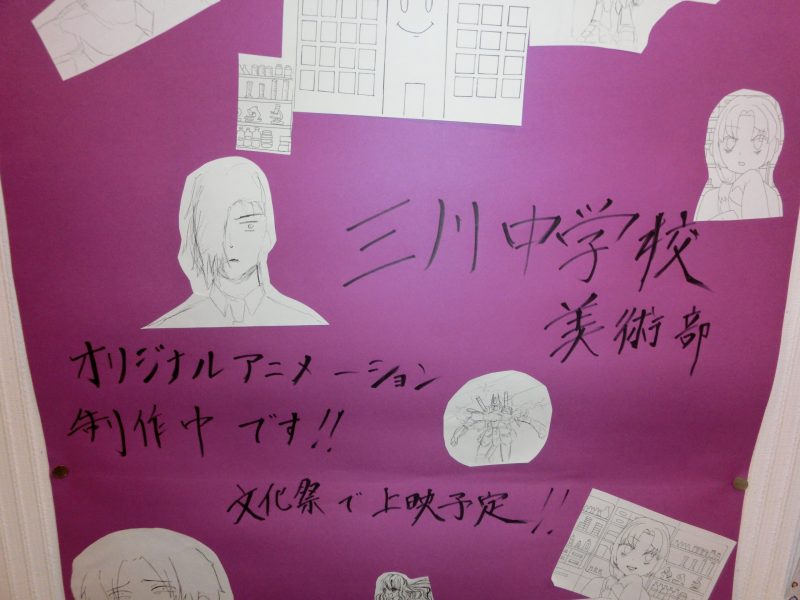 三川中学校
美術部
オリジナルアニメーション
制作中です!!
文化祭で上映予定!!